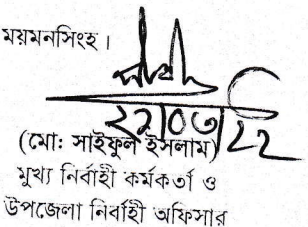 ময়মনসিংহ।
২২|০৩|২২
(মো: সাইফুল ইসলাম)
মুখ্য নির্বাহী কর্মকর্তা ও
উপজেলা নির্বাহী অফিসার